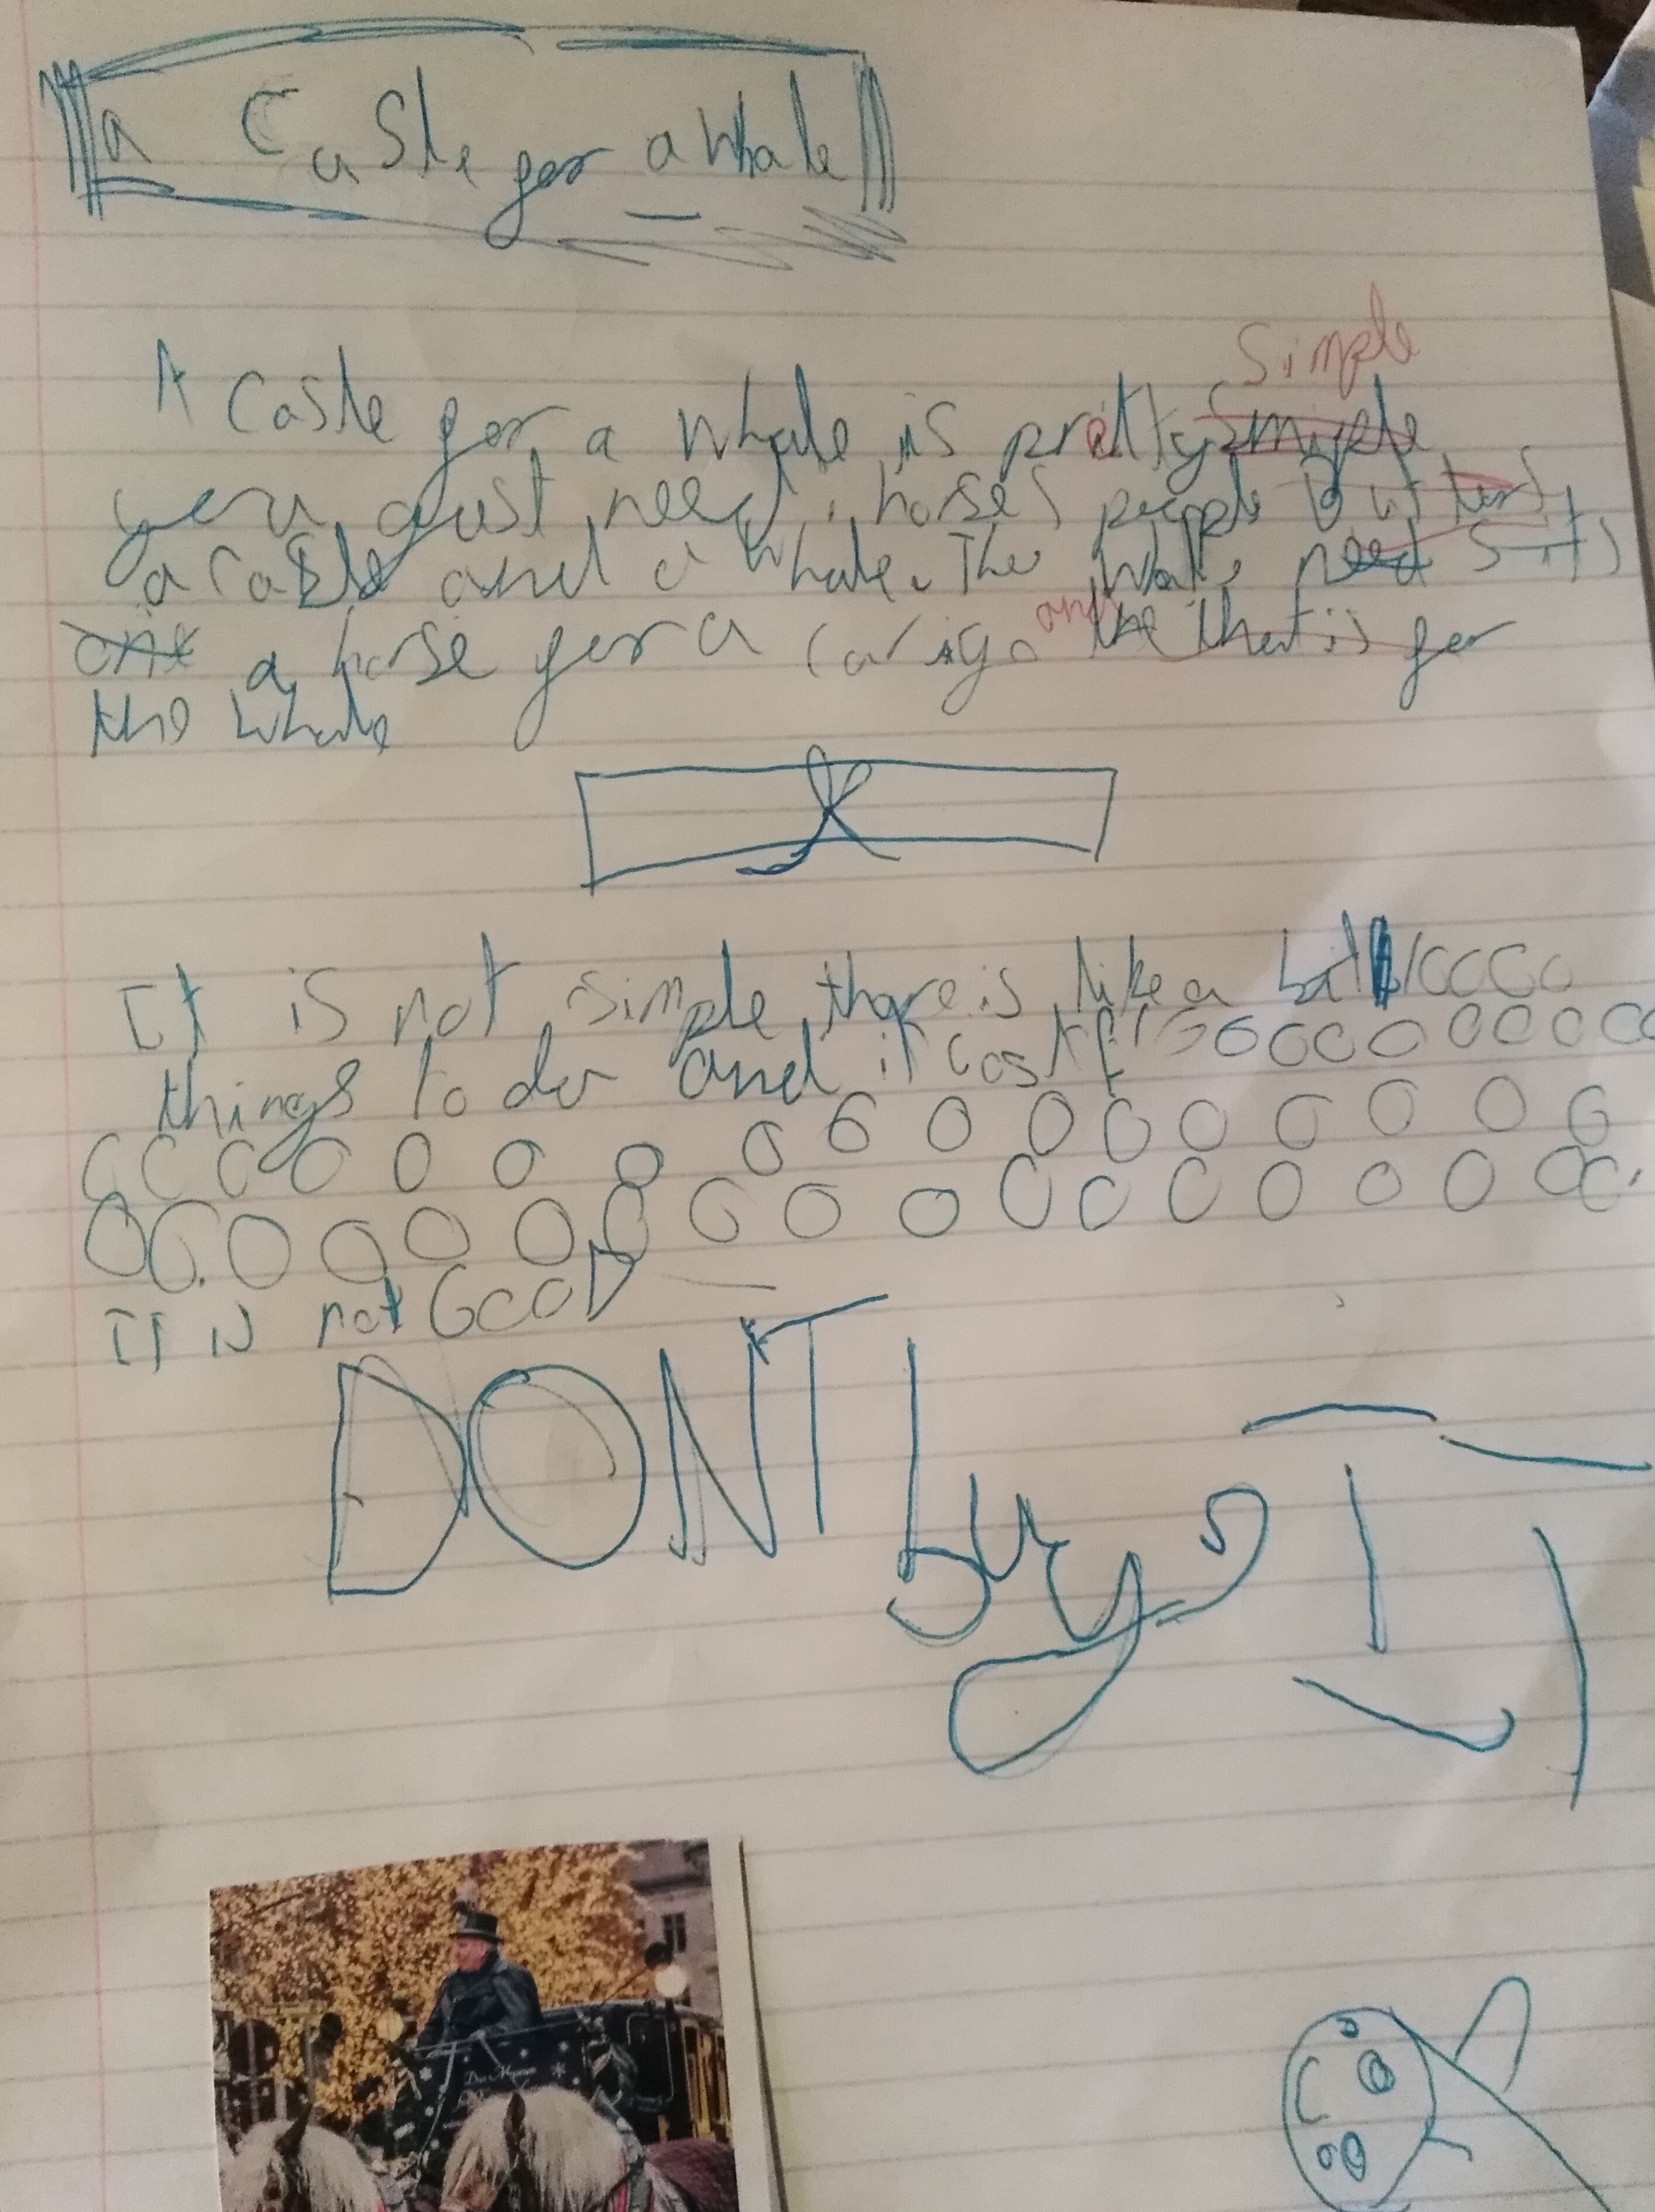 a Castle for a whale
Simple
A Castle for a whale is pretty smiple
you just need, horses people
a castle and a whale. The whale need sits
a horse for a carige and the that is for
the whale
It is not simple there is like a
things to do and it cost £
It is not GOOD
DONT buy IT